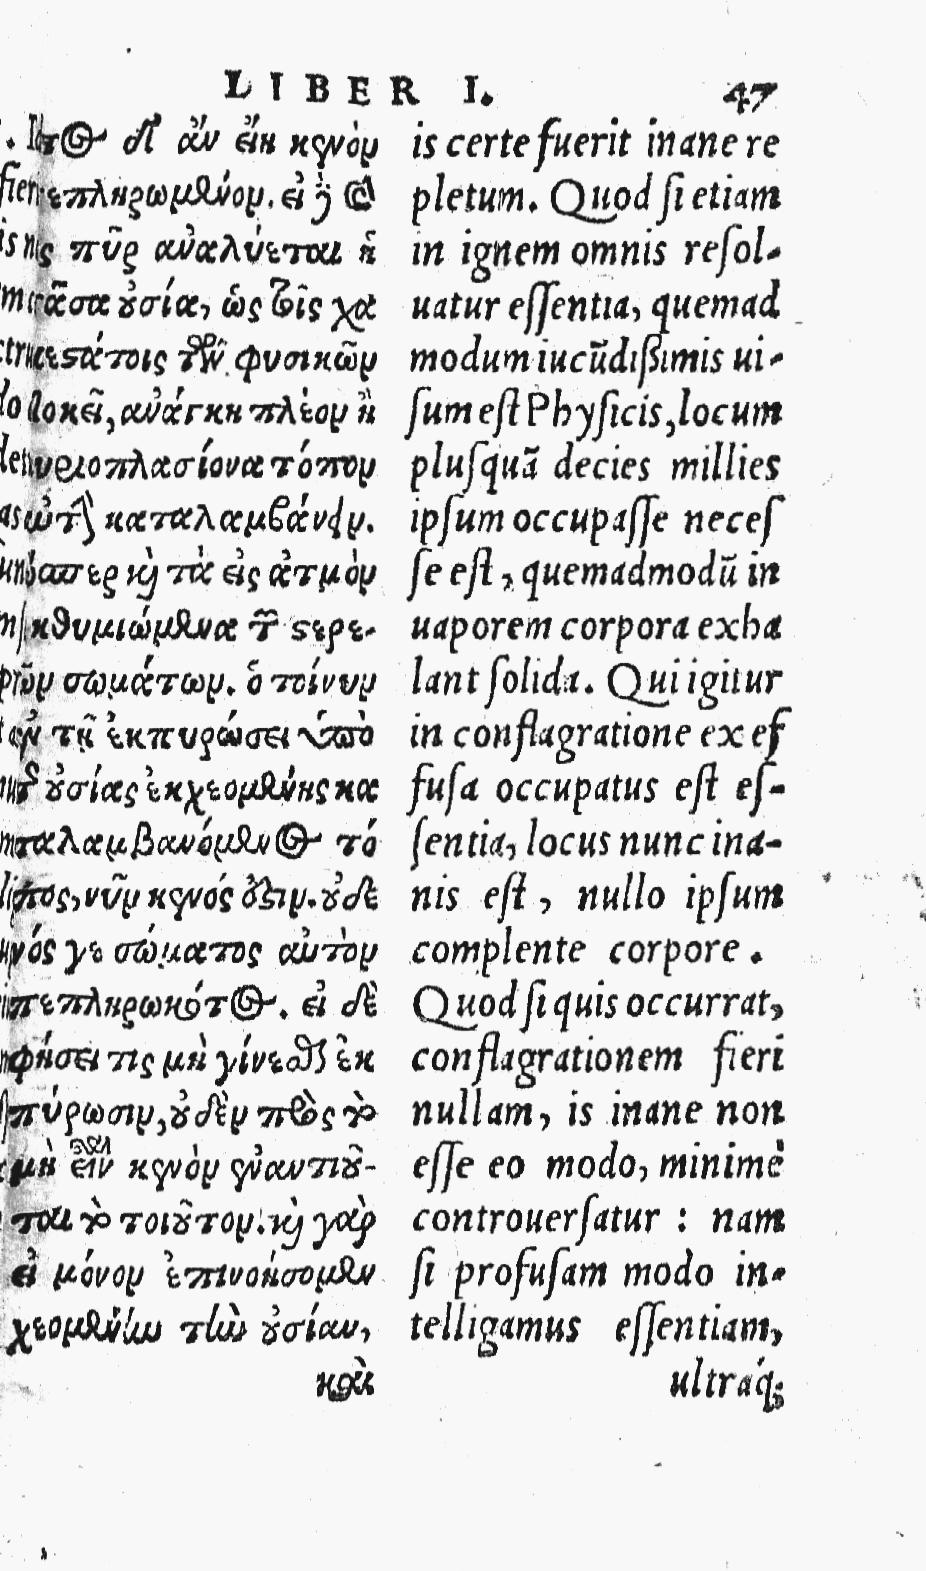 LIBER I. 47
τος δ' ἂν εἴη κενὸν
πεπληρωμένον. εἰ δὲ καὶ
εἰς πῦρ ἀναλύεται ἡ
πᾶσα οὐσία, ὡς τοῖς χα
ριεστάτοις τῶν φυσικῶν
δοκεῖ, ἀνάγκη πλέον ἢ
μυριοπλασίονα τόπον
αὐτὴν καταλαμβάνειν.
ὥσπερ καὶ τὰ εἰς ἀτμὸν
ἐκθυμιώμενα τῶν στερε-
ῶν σωμάτων. ὁ τοίνυν
ἐν τῇ ἐκπυρώσει ὑπὸ
τῆς οὐσίας ἐκχεομένης κα
ταλαμβανόμενος τό
πος, νῦν κενός ἐστιν. οὐδε
νός γε σώματος αὐτὸν
πεπληρωκότος. εἰ δὲ
φήσει τις μὴ γίνεσθαι ἐκ
πύρωσιν, οὐδὲν πρὸς τὸ
μὴ εἶναι κενὸν ἐναντιοῦ-
ται τὸ τοιοῦτον. καὶ γὰρ
εἰ μόνον ἐπινοήσομεν
χεομένην τὴν οὐσίαν,
καὶ
is certe fuerit inane re
pletum. Quod si etiam
in ignem omnis resol-
uatur essentia, quemad
modum iucũdissimis ui-
sum est Physicis, locum
plusquã decies millies
ipsum occupasse neces
se est, quemadmodũ in
uaporem corpora exha
lant solida. Qui igitur
in conflagratione ex ef
fusa occupatus est es-
sentia, locus nunc ina-
nis est, nullo ipsum
complente corpore.
Quod si quis occurrat,
conflagrationem fieri
nullam, is inane non
esse eo modo, minimè
controuersatur: nam
si profusam modo in-
telligamus essentiam,
ultráq;